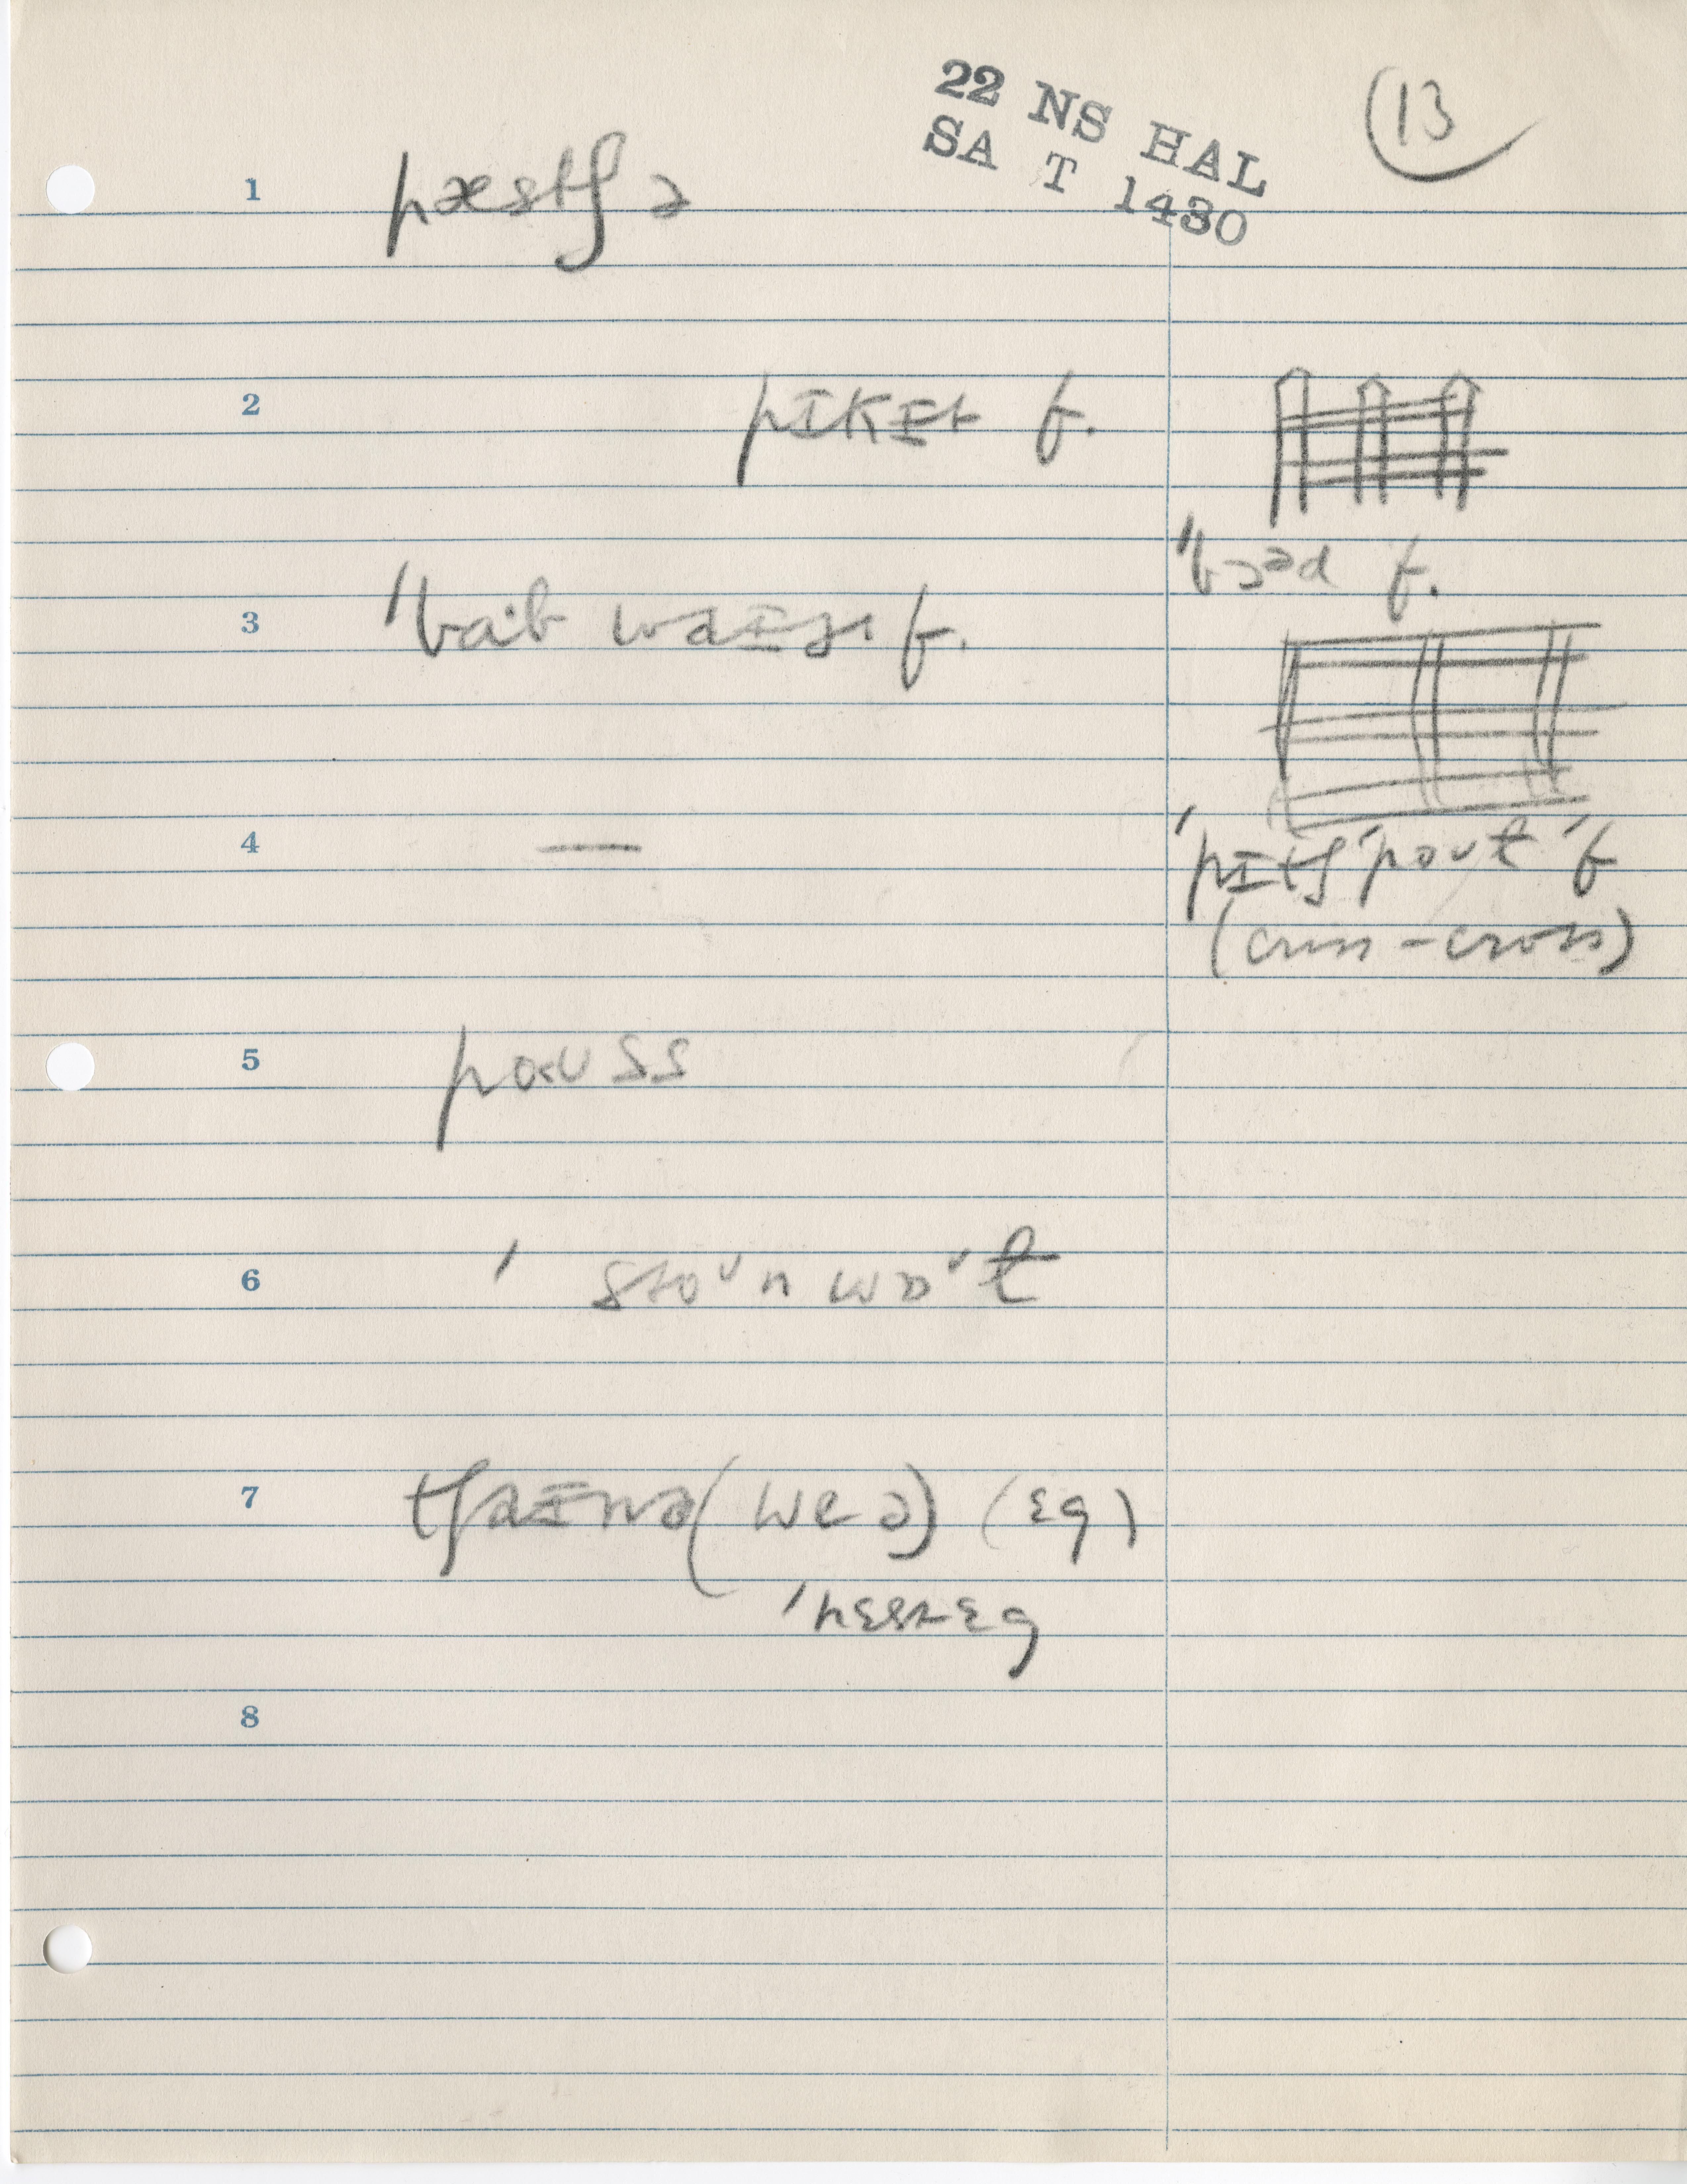 22 NS HAL
SA T 1430
13
1 pæstʃ ə
2 pɪkɪt f.
ˈbɔəd f.
3 ˈbaˑb waɪəɹ f.
4 —
ˈpɪtʃˈpoʊl ˈf
(criss-cross)
5 poʊsts
6 ˈ stoʊn wɒˑl
7 tʃaɪnə (weə) (ɛg)
ˈnɛstɛg
8